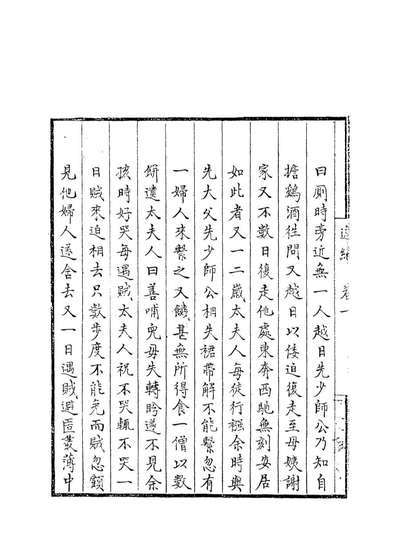 編卷一
曰厠時旁近無一人越日先少師公乃知自
擔鶴酒徃問又越日以倭迫復走至母姨謝
家又不數日復走他處東奔西馳無刻安居
如此者又一二歲太夫人每徒行襁余時與
先大父先少師公相失裙帶解不能繫忽有
一婦人來繫之又饑甚無所得食一僧以數
餅遺太夫人曰善哺兒毋失轉盻遂不見余
孩時好哭每遇賊太夫人祝不哭輒不哭一
日賊來迫相去只數步度不能免而賊忽顧
見他婦人遂舍去又一日遇賊避匿叢薄中